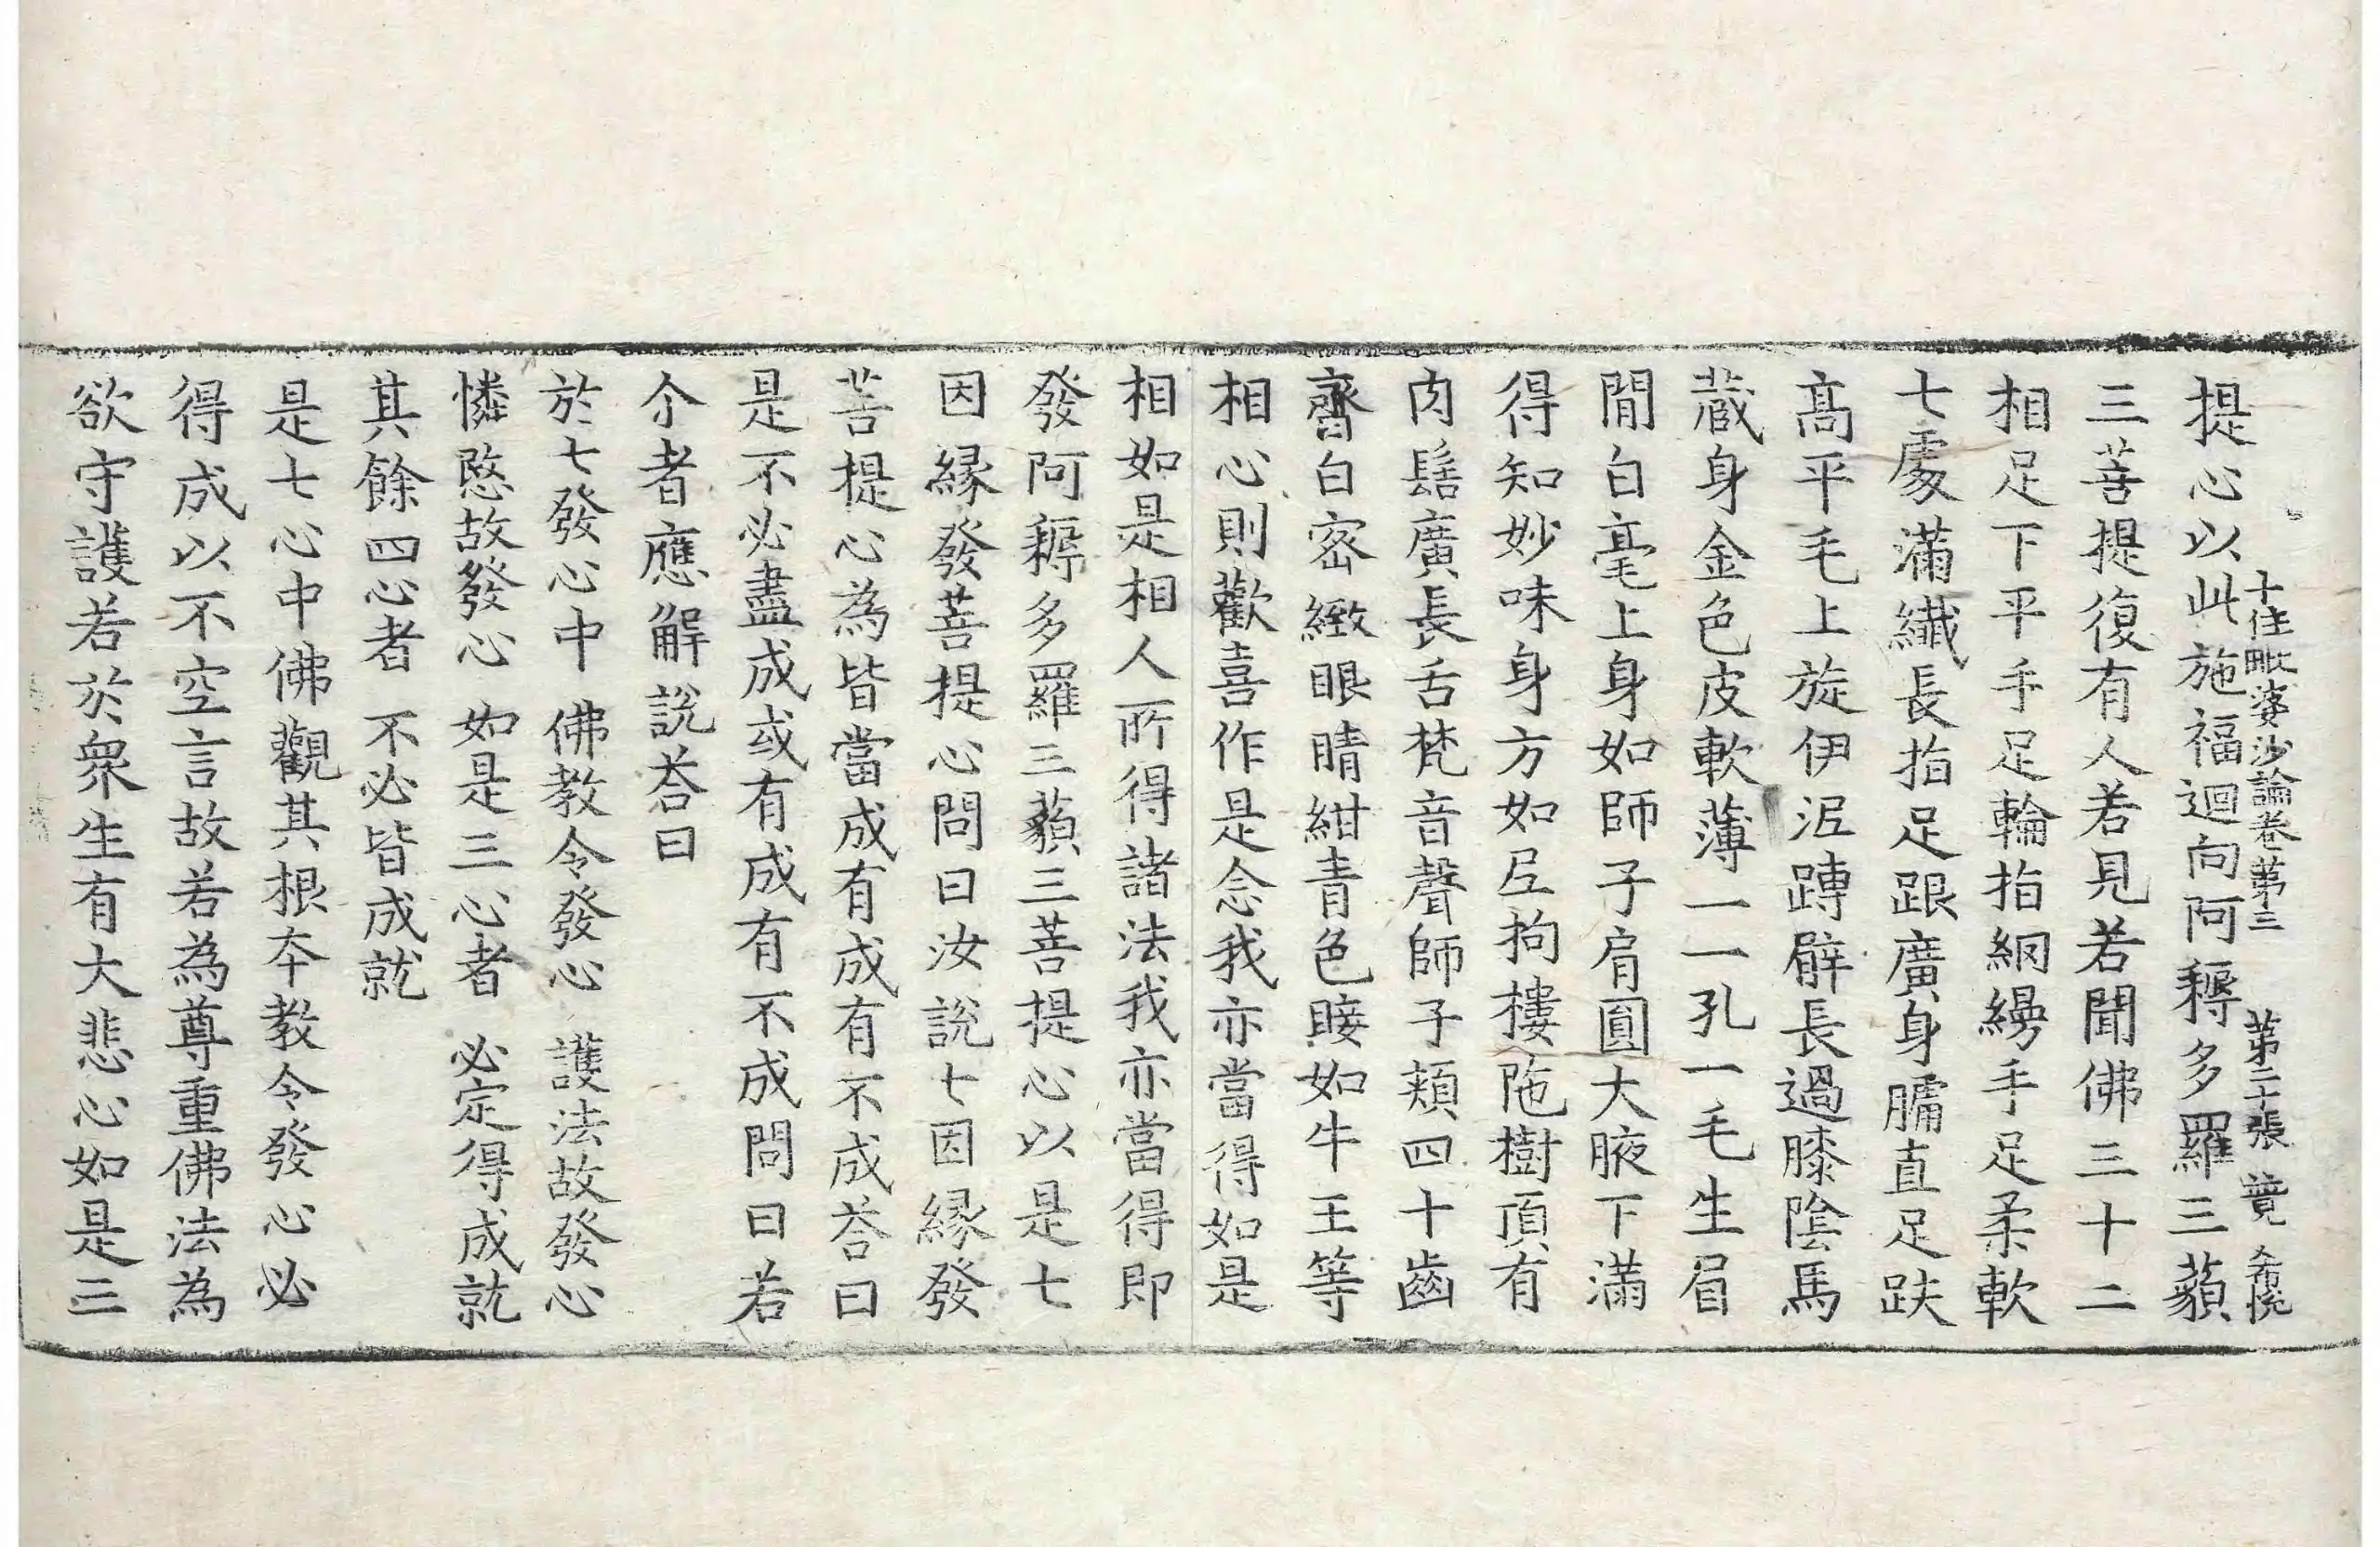 十住毗婆沙論卷第三 第二十張 競
提心以此施福迴向阿耨多羅三藐
三菩提復有人若見若聞佛三十二
相足下平手足輪指網縵手足柔軟
七處滿纖長指足跟廣身𦟛直足趺
高平毛上旋伊泥蹲髀長過膝陰馬
藏身金色皮軟薄一一孔一毛生眉
間白毫上身如師子肩圓大腋下滿
得知妙味身方如尼拘樓陁樹頂有
肉髻廣長舌梵音聲師子頰四十齒
齊白密緻眼睛紺青色睫如牛王等
相心則歡喜作是念我亦當得如是
相如是相人所得諸法我亦當得即
發阿耨多羅三藐三菩提心以是七
因緣發菩提心問曰汝說七因緣發
菩提心為皆當成有成有不成荅曰
是不必盡成或有成有不成問曰若
尒者應解說荅曰
於七發心中 佛教令發心 護法故發心
憐愍故發心 如是三心者 必定得成就
其餘四心者 不必皆成就
是七心中佛觀其根本教令發心必
得成以不空言故若為尊重佛法為
欲守護若於衆生有大悲心如是三